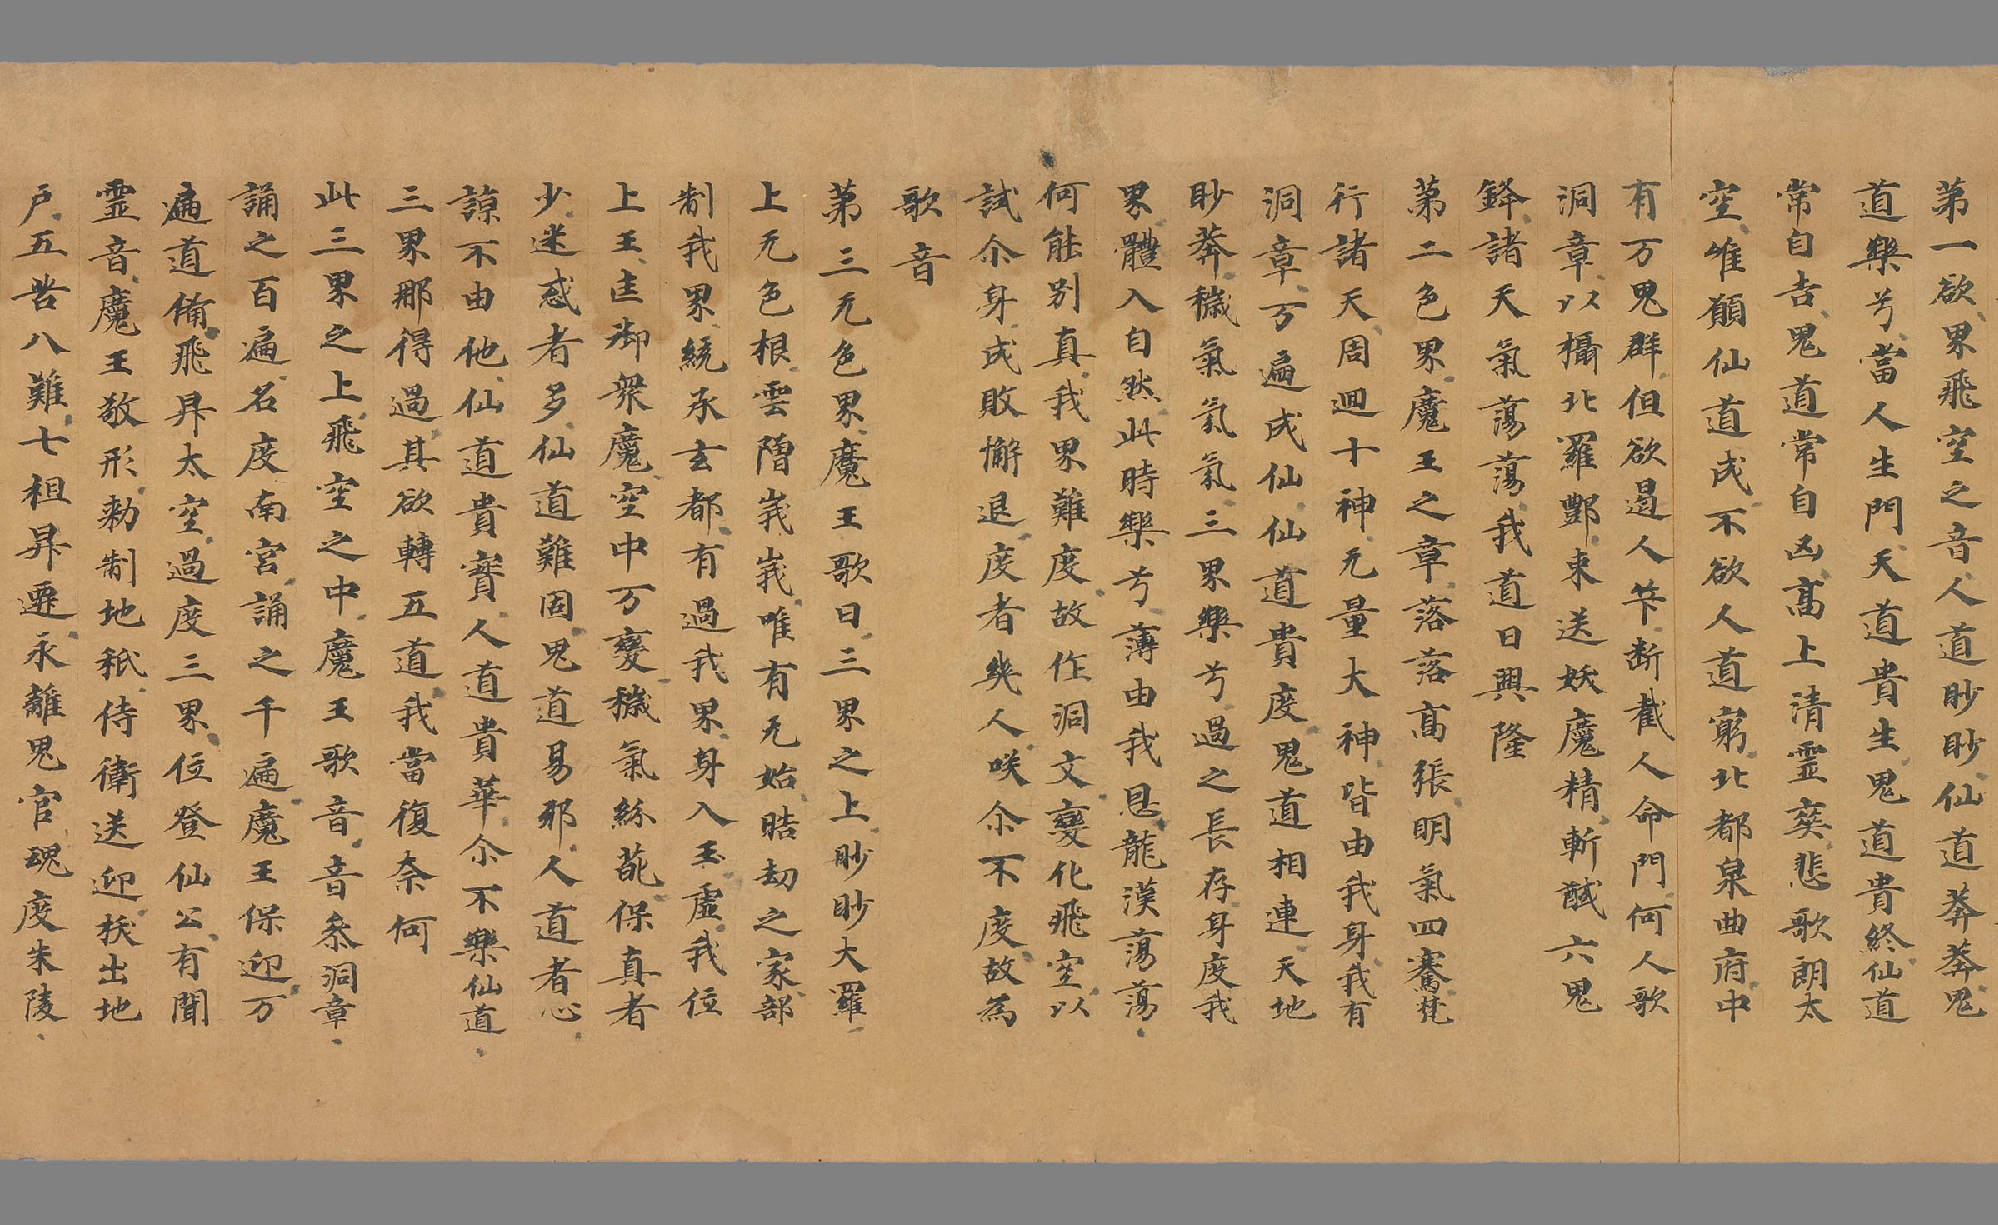 第一欲界飛空之音人道眇眇仙道莽莽鬼
道樂兮當人生門天道貴生鬼道貴終仙道
常自吉鬼道常自凶高上清霊㛐悲歌朗太
空唯願仙道成不欲人道窮北都泉曲府中
有万鬼群但欲遏人筭断截人命門何人歌
洞章以攝北羅酆束送妖魔精斬馘六鬼
鋒諸天氣蕩蕩我道日興隆
第二色界魔王之章落落高張明氣四騫梵
行諸天周迴十神无量大神皆由我身我有
洞章万遍成仙仙道貴度鬼道相連天地
眇莽穢氣氣氣三界樂兮過之長存身度我
界體入自然此時樂兮薄由我恩龍漢蕩蕩
何能別真我界難度故作洞文變化飛空以
試尒身成敗懈退度者幾人咲尒不度故為
歌音
第三无色界魔王歌曰三界之上眇眇大羅
上无色根雲䧜峩峩唯有无始晧劫之家部
制我界統承玄都有過我界身入玉虛我位
上王匡御衆魔空中万變穢氣紛葩保真者
少迷惑者多仙道難固鬼道易邪人道者心
諒不由他仙道貴實人道貴華尒不樂仙道
三界那得過其欲轉五道我當復奈何
此三界之上飛空之中魔王歌音音叅洞章
誦之百遍名度南宮誦之千遍魔王保迎万
遍道俻飛昇太空過度三界位登仙公有聞
霊音魔王敬形勅制地祇侍衛送迎拔出地
戶五苦八難七祖昇遷永離鬼官魂度朱陵